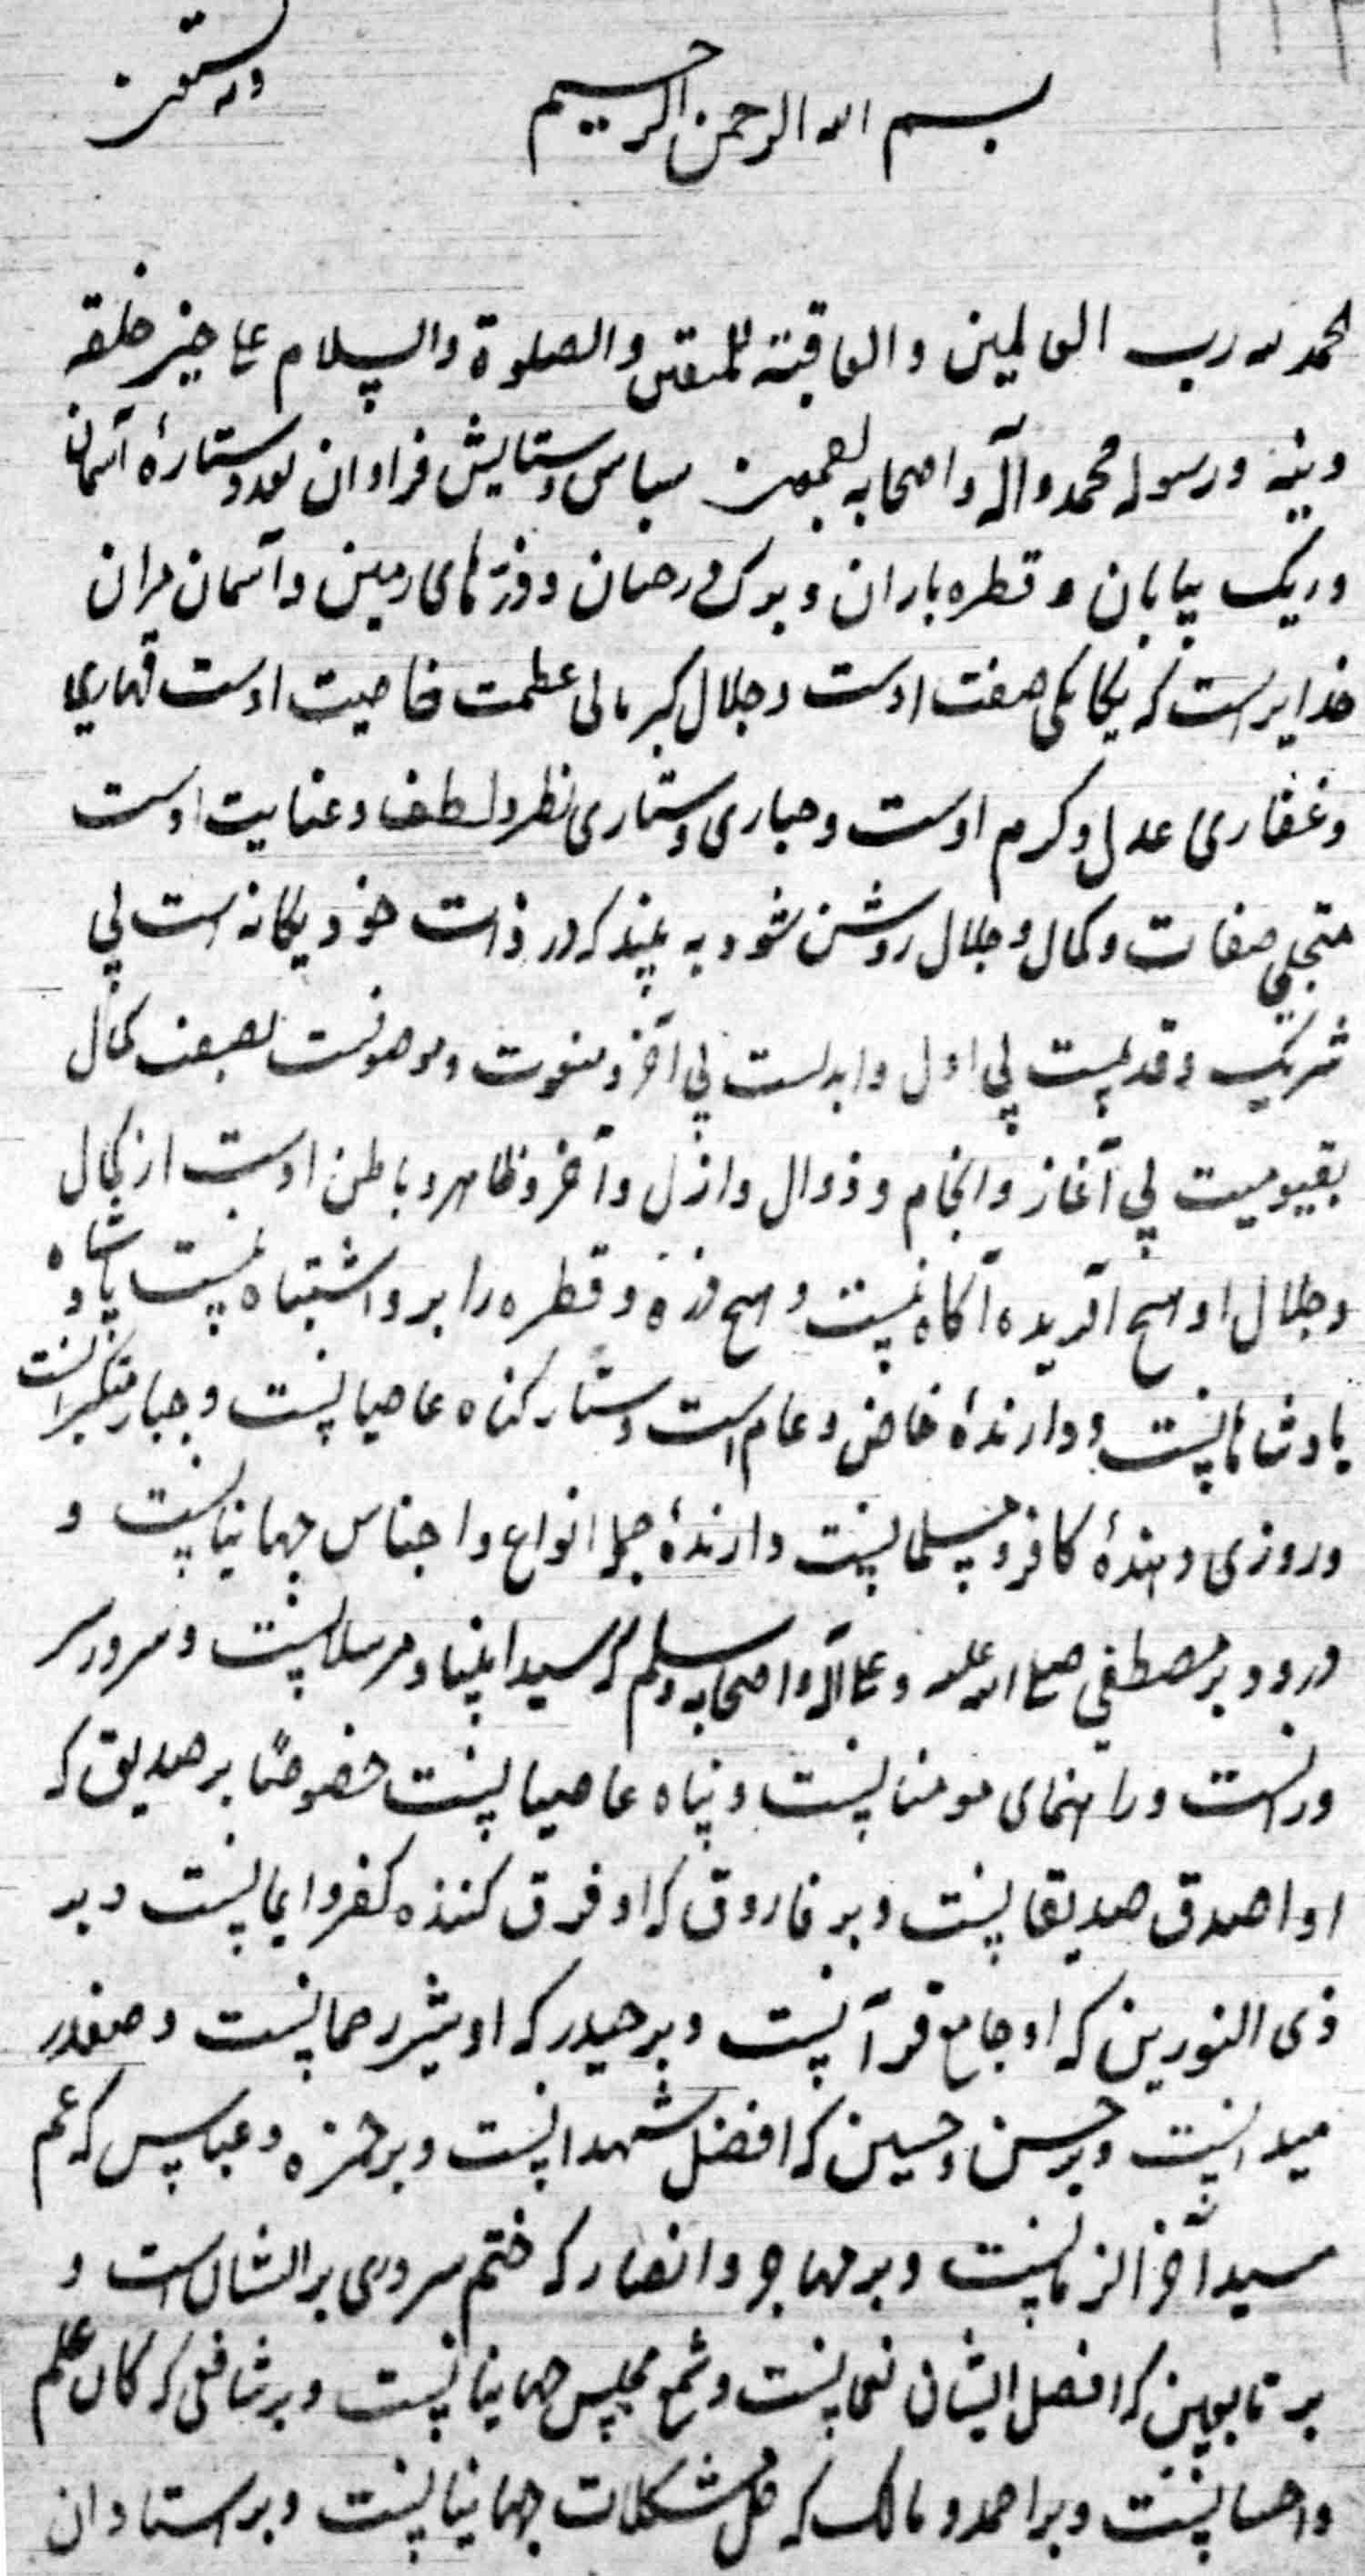 بسم الله الرحمن الرحیم
وبه نستعین
الحمد لله رب العالمین والعاقبة للمتقین والصلوة والسلام علی خیر خلقه
ونبیه ورسوله محمد وآله واصحابه اجمعین سپاس وستایش فراوان بعدد ستارهٔ آسمان
وریک بیابان و قطره باران و برک درختان و ذرهای زمین وآسمان مران
خدایراست که یکانکی صفت اوست و جلال کبریائی عظمت خاصیت اوست قهاری
وغفاری عدل وکرم اوست وجباری وستاری نظر ولطف وعنایت اوست
متجلی صفات وکمال وجلال روشن شود به بیند که در ذات خود یکانه است بی
شریک وقدیمست بی اول وابدیست بی آخر ومنعوت وموصوفست بصفت کمال
بقیومیت بی آغاز وانجام و زوال وازل وآخر وظاهر وباطن اوست از کمال
وجلال او هیچ آفریده آکاه نیست و هیچ ذره و قطره را برو اشتباه نیست پادشاه
پادشاهانست ودارندهٔ خاص وعام است وستار کناه عاصیانست وجبار متکبرانست
وروزی دهندهٔ کافر ومسلمانست دارندهٔ جمله انواع واجناس جهانیانست و
درود بر مصطفی صلی الله علیه وعلی آله واصحابه وسلم که سید انبیا ومرسلانست وسرور سر
ورانست وراهنمای مومنانست وپناه عاصیانست خصوصًا بر صدیق که
او اصدق صدیقانست وبر فاروق که او فرق کننده کفر وایمانست وبر
ذی النورین که او جامع قرآنست وبر حیدر که او شیر رحمانست وصفدر
میدانست وبر حسن وحسین که افضل شهدانست وبر حمزه وعباس که عم
سید آخر الزمانست وبر مهاجر وانصار که ختم سروری بر ایشان است و
بر تابعین که افضل ایشان نعمانست وشمع مجلس جهانیانست وبر شافعی که کان علم
واحسانست وبر احمد ومالک که حل مشکلات جهانیانست وبر استادان